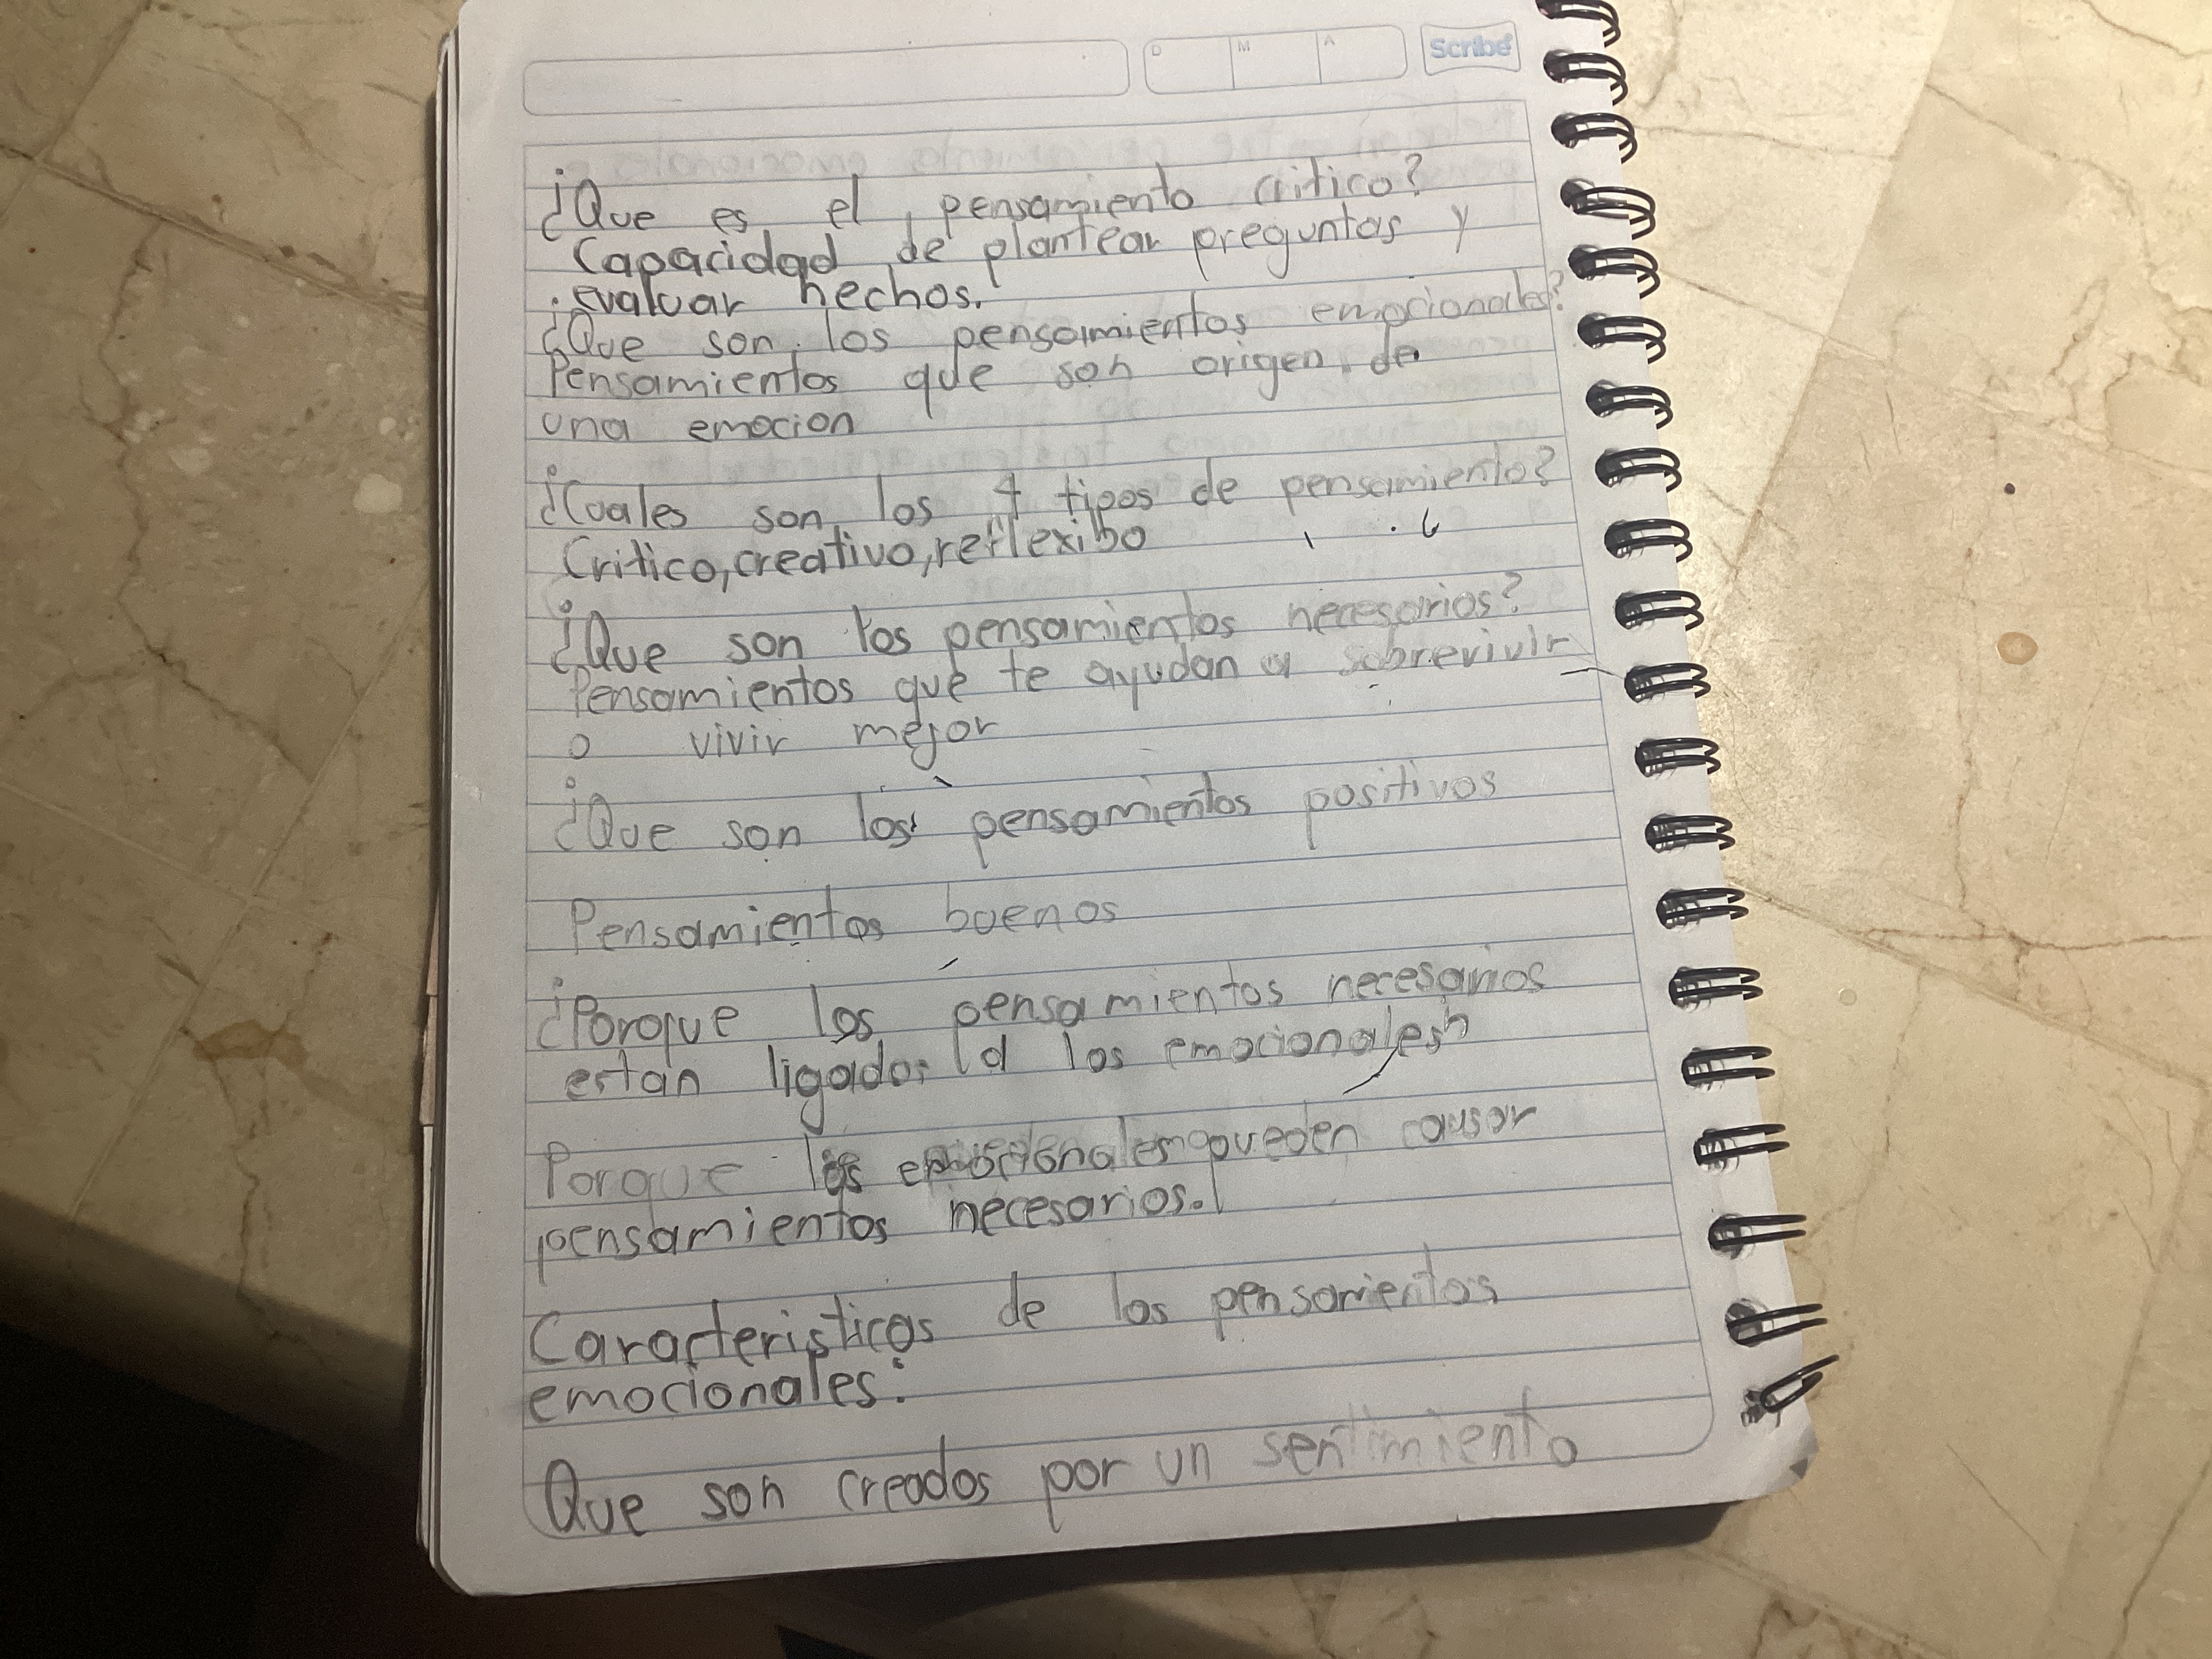 D M A Scribe
¿Que es el pensamiento critico?
Capacidad de plantear preguntas y
evaluar hechos.
¿Que son los pensamientos emocionales?
Pensamientos que son origen de
una emocion
¿Cuales son los 4 tipos de pensamiento?
Critico, creativo, reflexibo
¿Que son los pensamientos necesarios?
Pensamientos que te ayudan a sobrevivir
o vivir mejor
¿Que son los pensamientos positivos
Pensamientos buenos
¿Porque los pensamientos necesarios
estan ligados a los emocionales?
Porque los emocionales pueden causar
pensamientos necesarios.
Caracteristicas de los pensamientos
emocionales:
Que son creados por un sentimiento